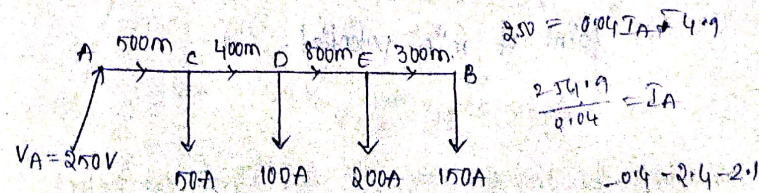 500m 400m 800m 300m
A C D E B
VA = 250V
50A 100A 200A 150A
250 = 0.04IA - 4.9
254.9 / 0.04 = IA
-0.4 - 2.4 - 2.1